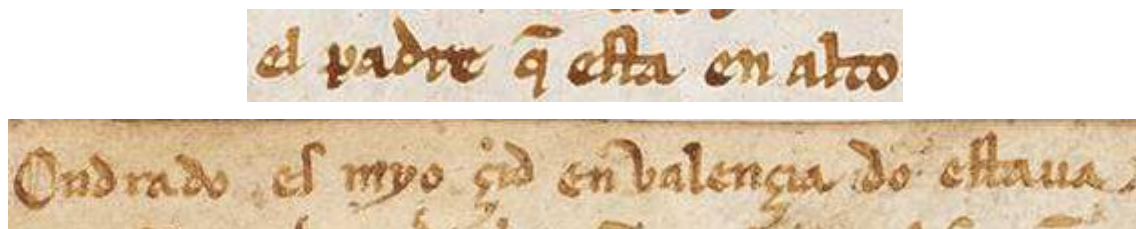 el padre q̄ eſta en alto
Ondrado eſ myo çid en valençia do eſtaua